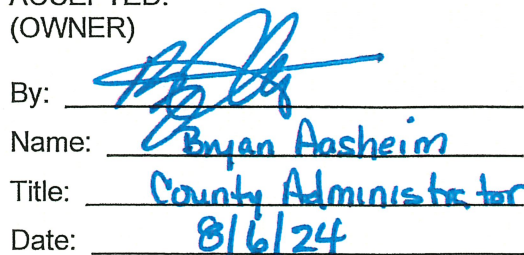 ACCEPTED:
(OWNER)
By:
Name: Bryan Aasheim
Title: County Administrator
Date: 8/6/24